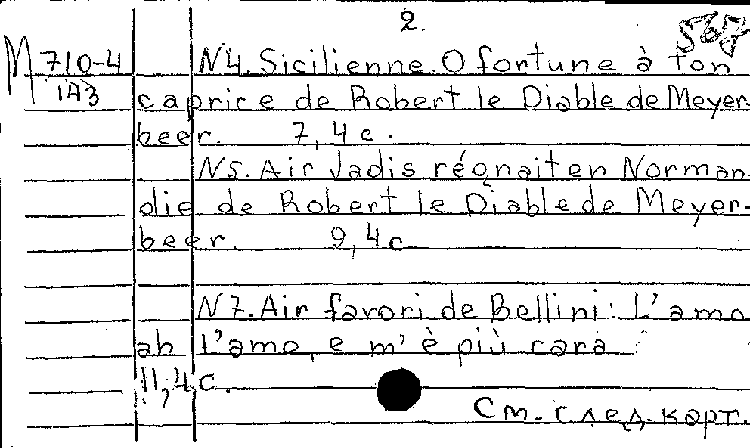 2.
567
М 710-4
143
N4. Sicilienne O fortune à ton
caprice de Robert le Diable de Meyer-
beer. 7, 4 c.
N5. Air Jadis régnait en Norman-
die de Robert le Diable de Meyer-
beer. 9, 4 c
N7. Air favori de Bellini: L'amo
ah L'amo, e m'è più cara
11, 4 c.
См. след. карт.